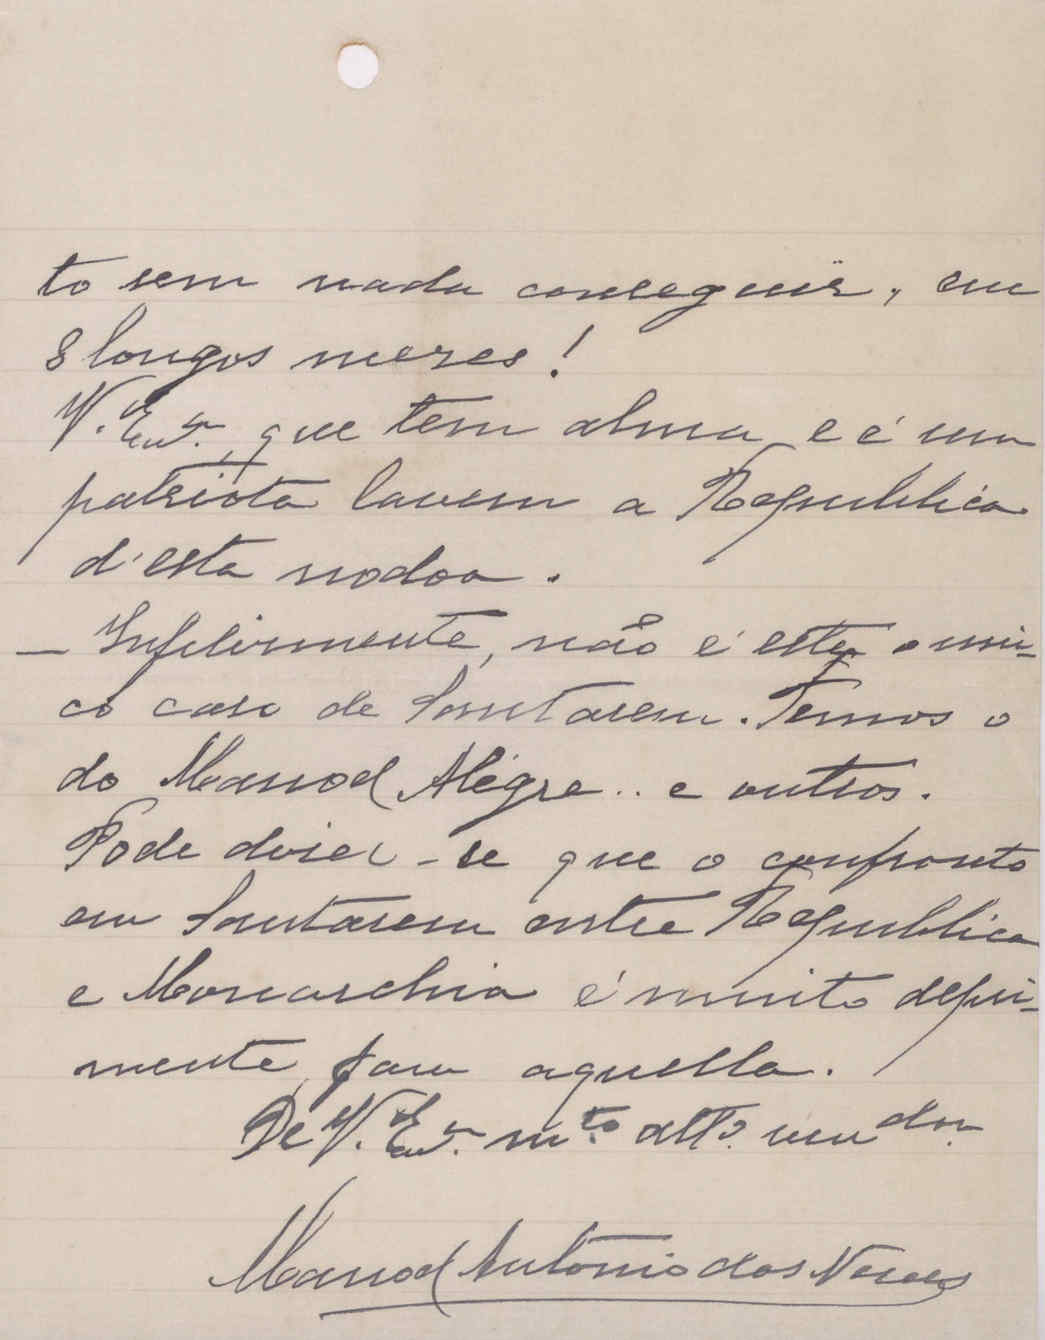 to sem nada conseguir, em
8 longos mezes!
V. Ex.ª, que tem alma e é um
patriota lavem a Republica
d'esta nodoa.
— Infelizmente, não é este o uni-
co caso de Santarem. Temos o
do Manoel Alégre.. e outros.
Pode dizer-se que o confronto
em Santarem entre Republica
e Monarchia é muito depri-
mente para aquella.
De V. Ex.ª m.to att.º ven.dor
Manoel António das Neves